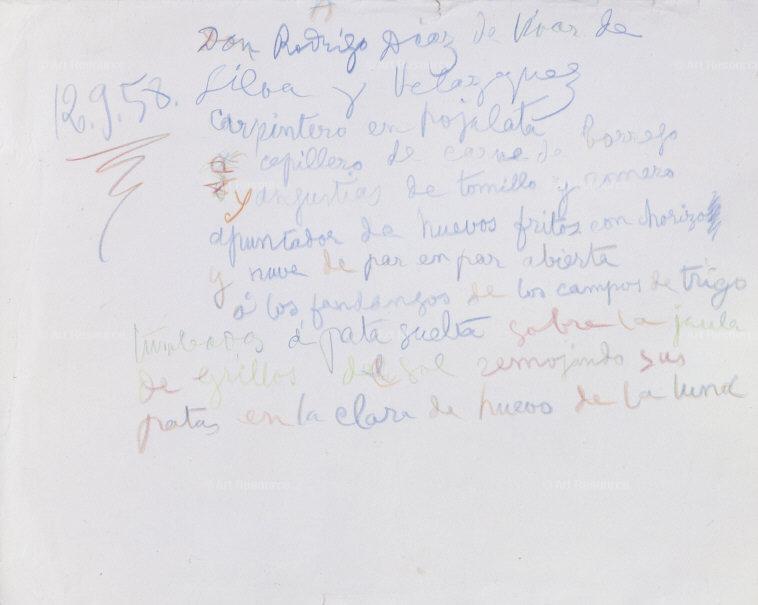 Don Rodrigo Diaz de Vivar de
12.9.58. Silva y Velazquez
carpintero en hojalata
capillero de carne de borrego
y angustias de tomillo y romero
apuntador de huevos fritos con chorizo
y nave de par en par abierta
á los fandangos de los campos de trigo
á pata suelta sobre la jaula
de grillos del sol remojando sus
patas en la clara de huevo de la luna